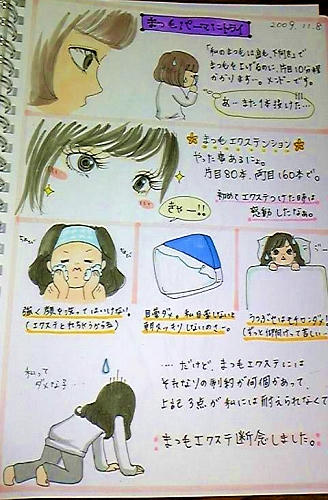 まつ毛パーマにトライ
2009.11.8
「私のまつ毛は直毛、下向き」で
まつ毛を上げるのに、片目10分程
かかります…。メンドーです。
あ…また1本抜けた…
まつ毛エクステンション
やった事あるにょ。
片目80本、両目160本で。
きゃー!!
初めてエクステつけた時は
感動したなぁ。
強く顔を洗ってはいけない。
(エクステとれちゃうから)
目薬ダメ。私、目薬しないと
朝スッキリしないのさ〜。
うつぶせはモチロンダメ!
(ずっと仰向けって苦しい…)
私って
ダメな子…
…だけど、まつ毛エクステには
それなりの制約が何個かあって、
上記3点が私には耐えられなくて
まつ毛エクステ断念しました。